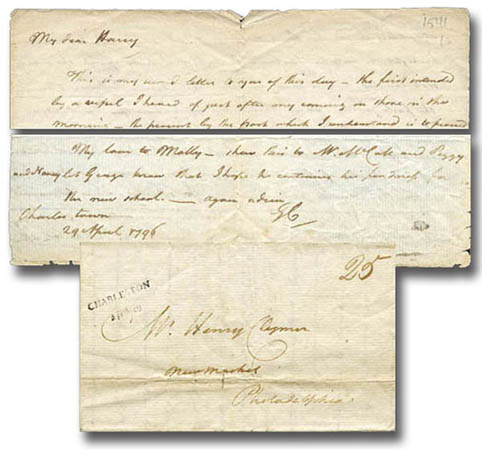 My dear Harry
This is my second letter to you of this day – the first intended
by a vessel I heard of just after my coming on shore in the
morning – the present by the post which I understand is to proceed
My love to Molly – shew this to Mr McCall and Peggy
and Nancy let George know that I hope he continues his fondness for
the new school. — again adieu
GC
Charles town
29 April 1796
25
CHARLESTON
Mr. Henry Clymer
New Market
Philadelphia